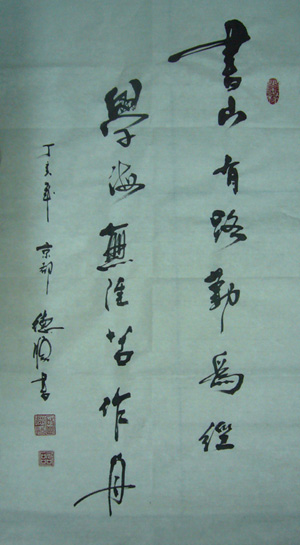 書山有路勤為徑
學海無涯苦作舟
丁亥年 京都 德順書